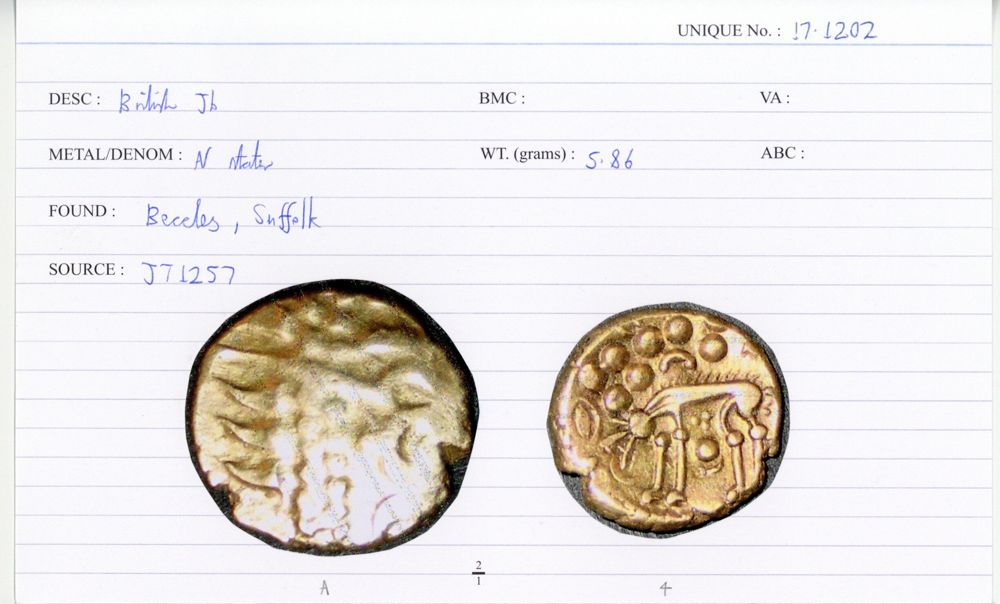 UNIQUE No. : 17.1202
DESC : British Jb BMC : VA :
METAL/DENOM : N stater WT. (grams) : 5.86 ABC :
FOUND : Beccles, Suffolk
SOURCE : JT1257
A 2/1 4